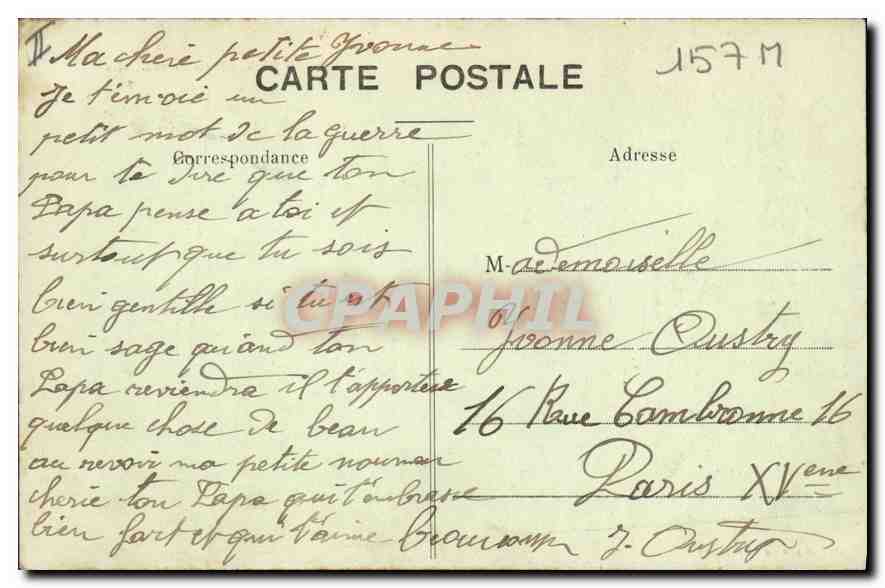 II
Ma chere petite Yvonne
157 M
CARTE POSTALE
Je t'envoie un
petit mot de la guerre
Correspondance
Adresse
pour te dire que ton
Papa pense a toi et
surtout que tu sois
bien gentille si tu est
bien sage quand ton
Papa reviendra il t'apportera
quelque chose de beau
au revoir ma petite
cherie ton Papa qui t'embrasse
bien fort et qui t'aime beaucoup J. Oustry
Mademoiselle
Yvonne Oustry
16 Rue Cambronne 16
Paris XVeme
CPAPHIL